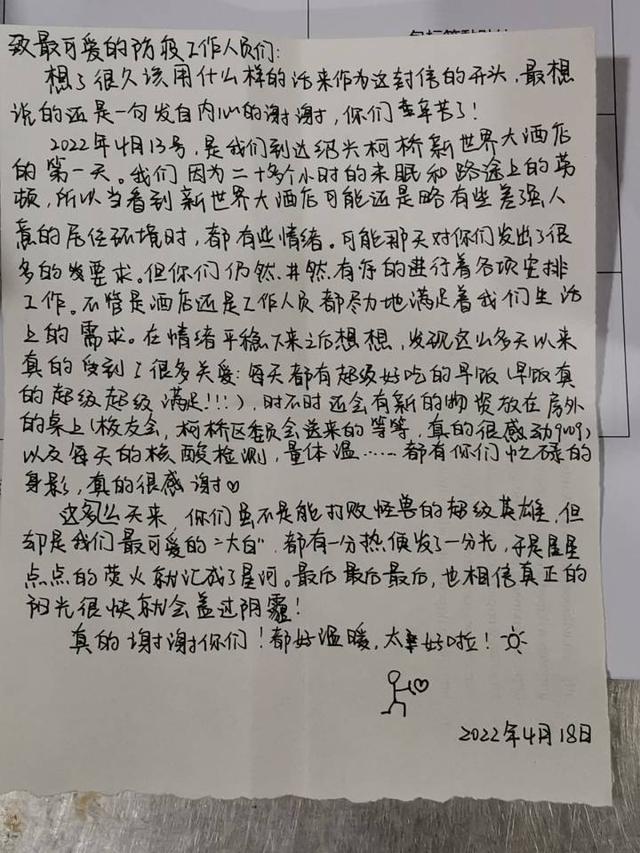 致最可爱的防疫工作人员们:
想了很久该用什么样的话来作为这封信的开头,最想
说的还是一句发自内心的谢谢,你们辛苦了!
2022年4月13号,是我们到达绍兴柯桥新世界大酒店
的第一天。我们因为二十多个小时的未眠和路途上的劳
顿,所以当看到新世界大酒店可能还是略有些差强人
意的居住环境时,都有些情绪。可能那天对你们发出了很
多的要求。但你们仍然井然有序的进行着各项安排
工作。不管是酒店还是工作人员都尽力地满足着我们生活
上的需求。在情绪平稳下来之后想想,发现这么多天以来
真的受到了很多关爱:每天都有超级好吃的早饭(早饭真
的超级超级满足!!!),时不时还会有新的物资放在房外
的桌上(校友会,柯桥区委员会送来的等等,真的很感动)
以及每天的核酸检测,量体温……都有你们忙碌的
身影,真的很感谢♡
这么多天来,你们虽不是能打败怪兽的超级英雄,但
却是我们最可爱的“大白”,都有一分热便发了一分光,于是星星
点点的萤火就汇成了星河。最后最后最后,也相信真正的
阳光很快就会盖过阴霾!
真的谢谢你们!都好温暖,太好啦!
2022年4月18日